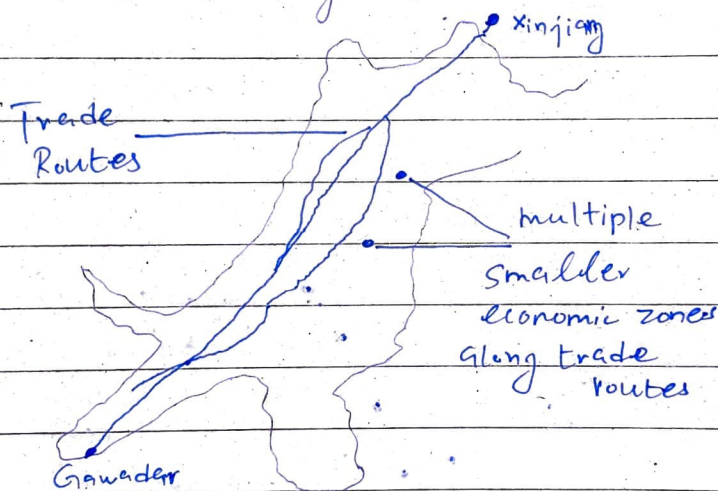 xinjiang
Trade
Routes
multiple
smalder
economic zones
along trade
routes
Gawadar